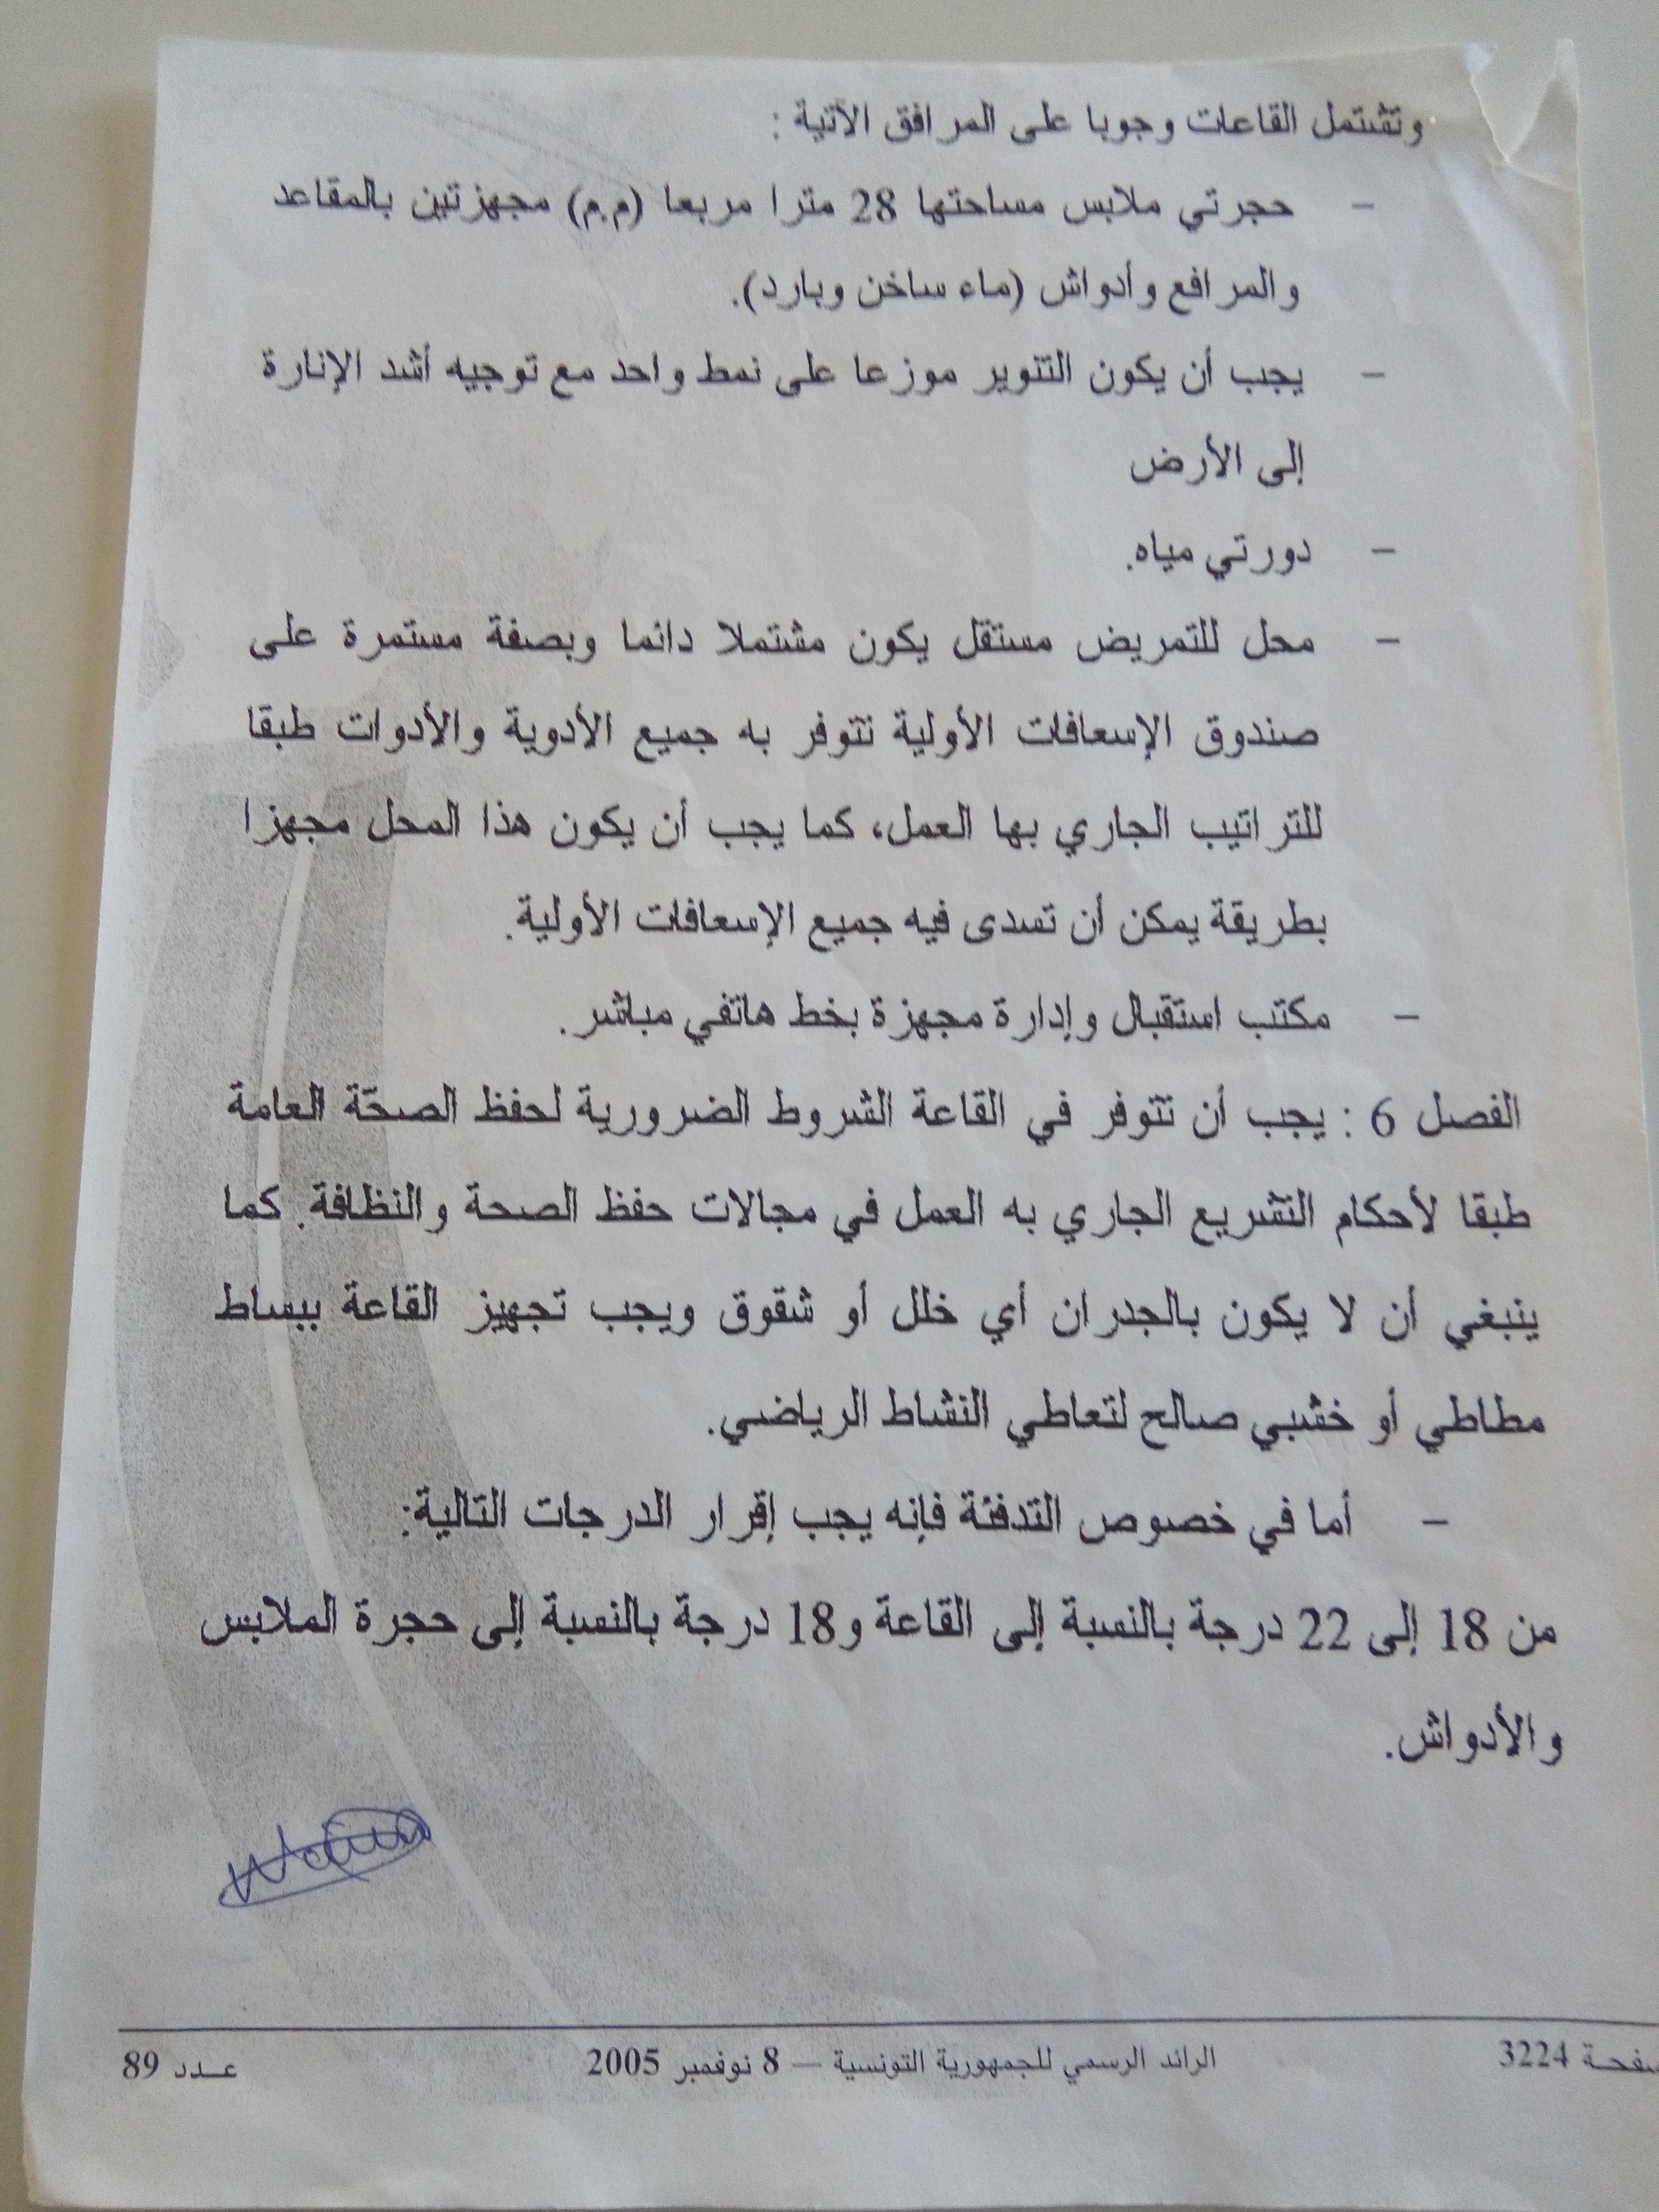 وتشتمل القاعات وجوبا على المرافق الآتية :
– حجرتي ملابس مساحتها 28 مترا مربعا (م.م) مجهزتين بالمقاعد
والمرافع وأدواش (ماء ساخن وبارد).
– يجب أن يكون التنوير موزعا على نمط واحد مع توجيه أشد الإنارة
إلى الأرض
– دورتي مياه.
– محل للتمريض مستقل يكون مشتملا دائما وبصفة مستمرة على
صندوق الإسعافات الأولية تتوفر به جميع الأدوية والأدوات طبقا
للتراتيب الجاري بها العمل، كما يجب أن يكون هذا المحل مجهزا
بطريقة يمكن أن تسدى فيه جميع الإسعافات الأولية.
– مكتب استقبال وإدارة مجهزة بخط هاتفي مباشر.
الفصل 6 : يجب أن تتوفر في القاعة الشروط الضرورية لحفظ الصحّة العامة
طبقا لأحكام التشريع الجاري به العمل في مجالات حفظ الصحة والنظافة. كما
ينبغي أن لا يكون بالجدران أي خلل أو شقوق ويجب تجهيز القاعة ببساط
مطاطي أو خشبي صالح لتعاطي النشاط الرياضي.
– أما في خصوص التدفئة فإنه يجب إقرار الدرجات التالية:
من 18 إلى 22 درجة بالنسبة إلى القاعة و18 درجة بالنسبة إلى حجرة الملابس
والأدواش.
صفحة 3224 الرائد الرسمي للجمهورية التونسية — 8 نوفمبر 2005 عـدد 89